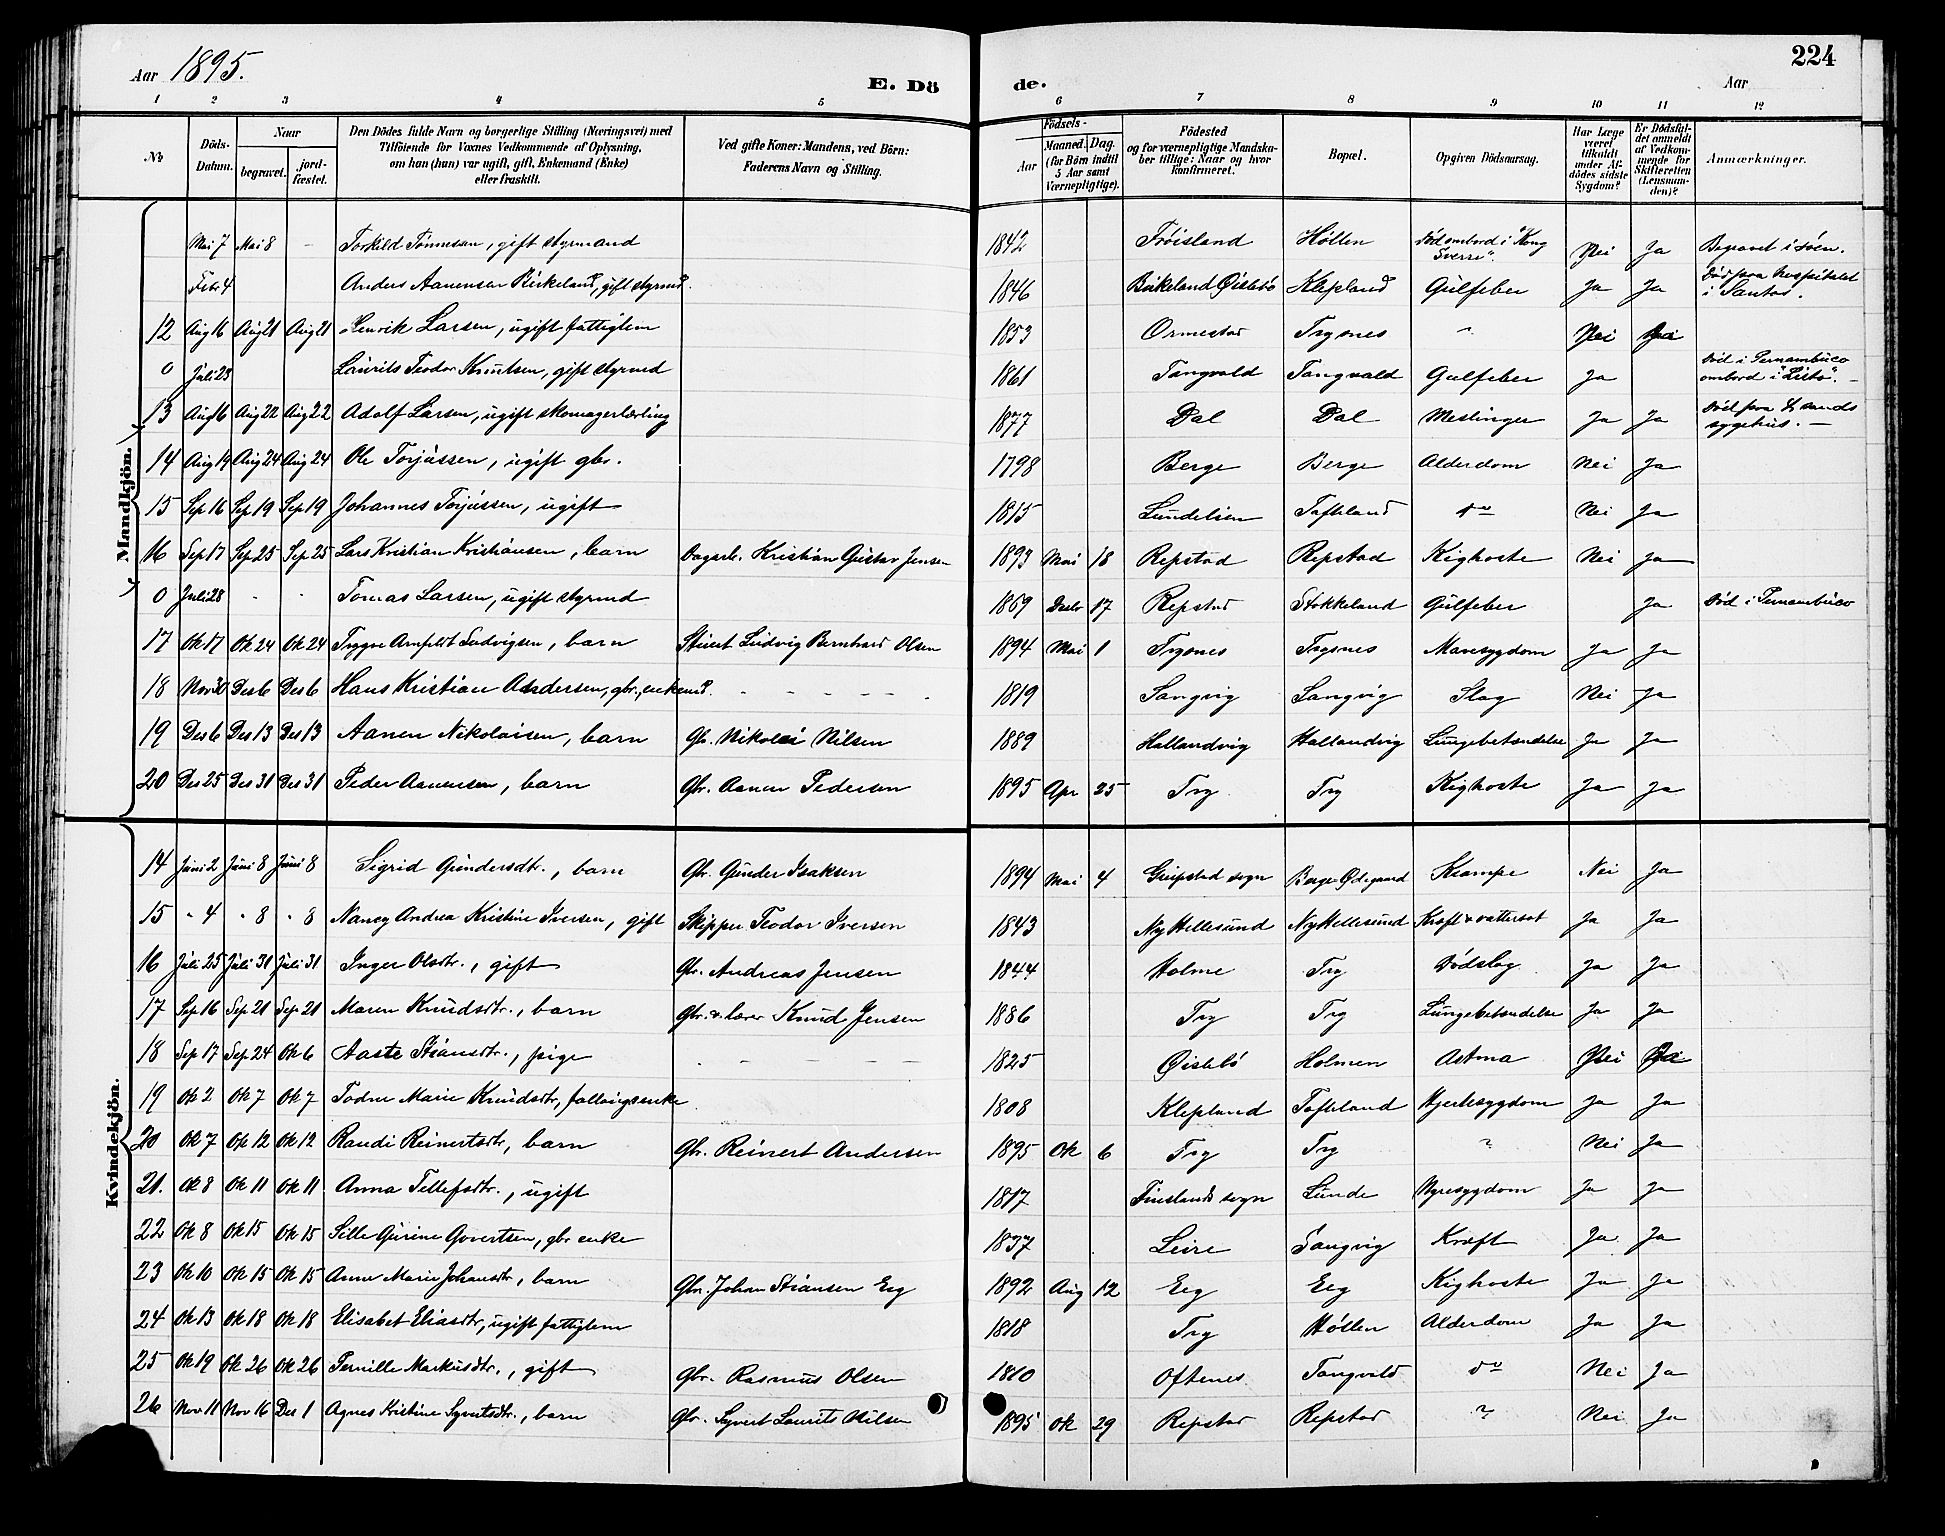 Aar 1895. E. Dö de. Aar 224
1 2 3 4 5 6 7 8 9 10 11 12
No Döds-Datum. Naar begravet. jord-fæstet. Den Dödes fulde Navn og borgerlige Stilling (Næringsvei) med Tilföiende for Voxnes Vedkommende af Oplysning, om han (hun) var ugift, gift, Enkemand (Enke) eller fraskilt. Ved gifte Koner: Mandens, ved Börn: Faderens Navn og Stilling. Födsels- Aar Maaned. Dag. (for Börn indtil 5 Aar samt Værnepligtige). Födested og for værnepligtige Mandska-ber tillige: Naar og hvor konfirmeret. Bopæl. Opgiven Dödsaarsag. Har Læge været tilkaldt under Af-dödes sidste Sygdom? Er Dödsfal-det anmeldt af Vedkom-mende for Skifteretten (Lensman-den)? Anmærkninger.
Mandkjön.
Mai 7 Mai 8 - Torkild Tönnesen, gift styrmand 1842 Tröisland Höllen Död ombord i "Kong Sverre". Nei Ja Begravet i söen.
Febr 4 Anders Aanensen Birkeland, gift styrmd. 1846 Birkeland Öislebö Klepland Gulfeber Ja Ja Död paa hospitalet i Santos.
12 Aug 16 Aug 21 Aug 21 Henrik Larsen, ugift fattiglem 1853 Ormestad Trysnes " Nei
0 Juli 23 Laurits Teodor Knutsen, gift styrmd 1861 Tangvald Tangvald Gulfeber Ja Död i Pernambuco ombord i "Lista". -
13 Aug 16 Aug 22 Aug 22 Adolf Larsen, ugift skomagerlærling 1877 Dal Dal Meslinger Ja Ja Död paa Kr sands sygehus. -
14 Aug 19 Aug 24 Aug 24 Ole Torjussen, ugift gbr. 1798 Berge Berge Alderdom Nei Ja
15 Sep 16 Sep 19 Sep 19 Johannes Torjussen, ugift 1815 Lundelien Tofteland do Nei Ja
16 Sep 17 Sep 25 Sep 25 Lars Kristian Kristiansen, barn Dagarb. Kristian Gustav Jensen 1893 Mai 18 Repstad Repstad Kighoste Nei Ja
0 Juli 28 - - Tomas Larsen, ugift styrmd 1869 Desbr 17 Repstad Stokkeland Gulfeber Ja Död i Pernambuco
17 Ok 17 Ok 24 Ok 24 Trygve Arnfeldt Ludvigsen, barn Stuert Ludvig Bernhard Olsen 1894 Mai 1 Trysnes Trysnes Mavesygdom Ja Ja
18 Nov 30 Des 6 Des 6 Hans Kristian Andersen, gbr., enkemd. - - - - - 1819 Langvig Langvig Slag Nei Ja
19 Des 6 Des 13 Des 13 Aanen Nikolaisen, barn Gbr. Nikolai Nilsen 1889 Hallandvig Hallandvig Lungebetændelse Ja Ja
20 Des 25 Des 31 Des 31 Peder Aanensen, barn Gbr. Aanen Pedersen 1895 Apr 25 Try Try Kighoste Ja Ja
Kvindekjön.
14 Juni 2 Juni 8 Juni 8 Sigrid Gundersdtr., barn Gbr. Gunder Isaksen 1894 Mai 4 Greipstad sogn Berge Ödegaard Krampe Nei Ja
15 " 4 " 8 " 8 Nancy Andrea Kristine Iversen, gift Skipper Teodor Iversen 1843 Ny Hellesund Ny Hellesund Kræft & vattersot Ja Ja
16 Juli 25 Juli 31 Juli 31 Inger Olsdtr., gift Gbr. Andreas Jensen 1844 Holme Try Dödslag Ja Ja
17 Sep 16 Sep 21 Sep 21 Maren Knudsdtr., barn Gbr. & lærer Knud Jensen 1886 Try Try Lungebetændelse Ja Ja
18 Sep 17 Sep 24 Ok 6 Aaste Stiansdtr., pige - - - - - 1825 Öislebö Holmen Astma Nei
19 Ok 2 Ok 7 Ok 7 Todne Marie Knudsdtr, fattigenke 1808 Klepland Tofteland Hjertesygdom Ja Ja
20 Ok 7 Ok 12 Ok 12 Randi Reinertsdtr, barn Gbr. Reinert Andersen 1895 Ok 6 Try Try ? Nei Ja
21. Ok 8 Ok 11 Ok 11 Anna Tellefsdtr., ugift 1817 Finslands sogn Lunde Nyresygdom Ja Ja
22 Ok 8 Ok 15 Ok 15 Sille Gurine Govertsen, gbr enke 1837 Leire Langvig Kræft Ja Ja
23 Ok 10 Ok 15 Ok 15 Anne Marie Johansdtr, barn Gbr. Johan Stiansen Eeg 1892 Aug 12 Eeg Eeg Kighoste Ja Ja
24 Ok 13 Ok 18 Ok 18 Elisabet Eliasdtr, ugift fattiglem 1818 Try Höllen Alderdom Ja Ja
25 Ok 19 Ok 26 Ok 26 Pernille Markusdtr., gift Gbr. Rasmus Olsen 1810 Oftenes Tangvald do Nei Ja
26 Nov 11 Nov 16 Des 1 Agnes Kristine Syvertsdtr., barn Gbr. Syvert Laurits Nilsen 1895 Ok 29 Repstad Repstad ? Nei Ja